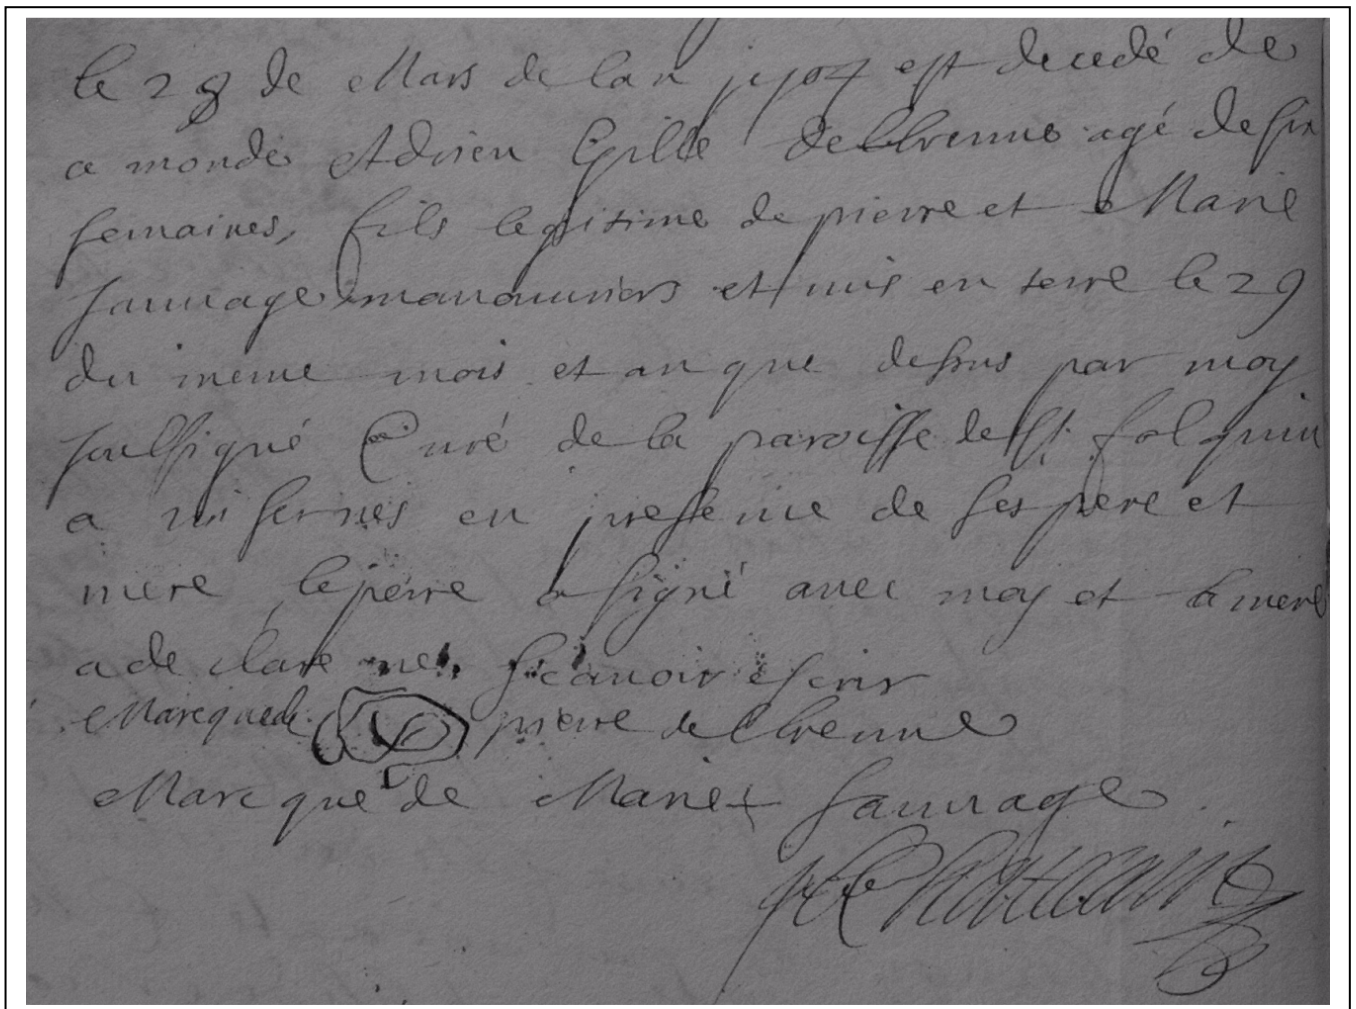 le 28 de Mars de lan j704 est decedé de
ce monde Adrien Gille delbrenne agé de six
semaines, fils legitime de pierre et Marie
sauuage manouuriers et mis en terre le 29
du meme mois et an que dessus par moy
soussigné Curé de la paroisse de St. folquin
a en presence de ses pere et
mere le pere a signé auec moy et la mere
a declare ne scauoir escrir
Marque de pierre delbrenne
Marcque de Marie + sauuage